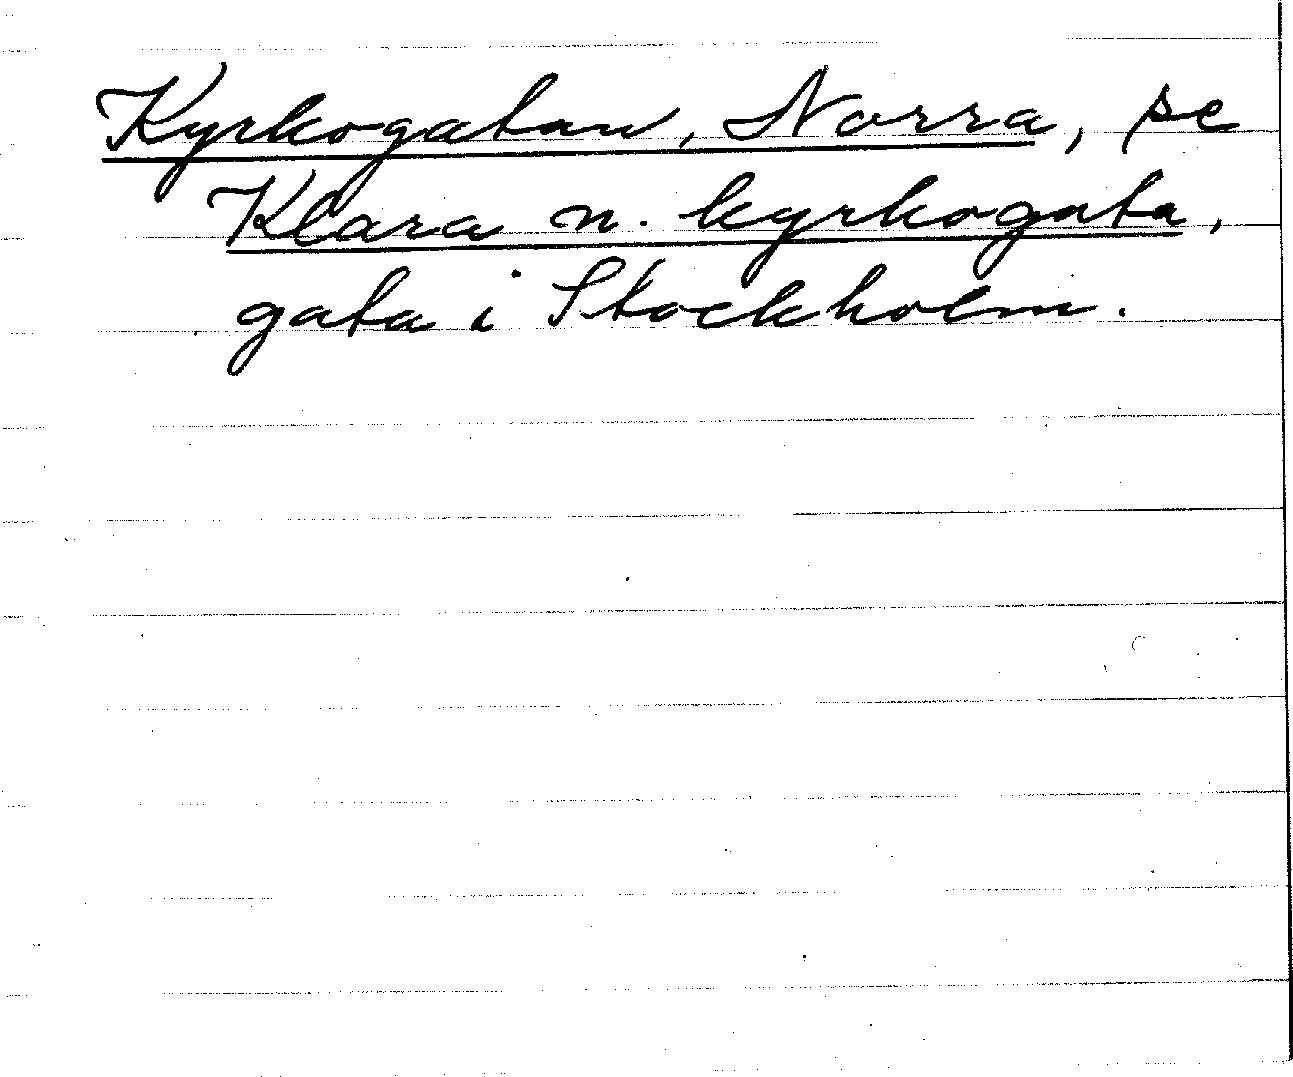 Kyrkogatan, Norra, se
Klara n. kyrkogata,
gata i Stockholm.